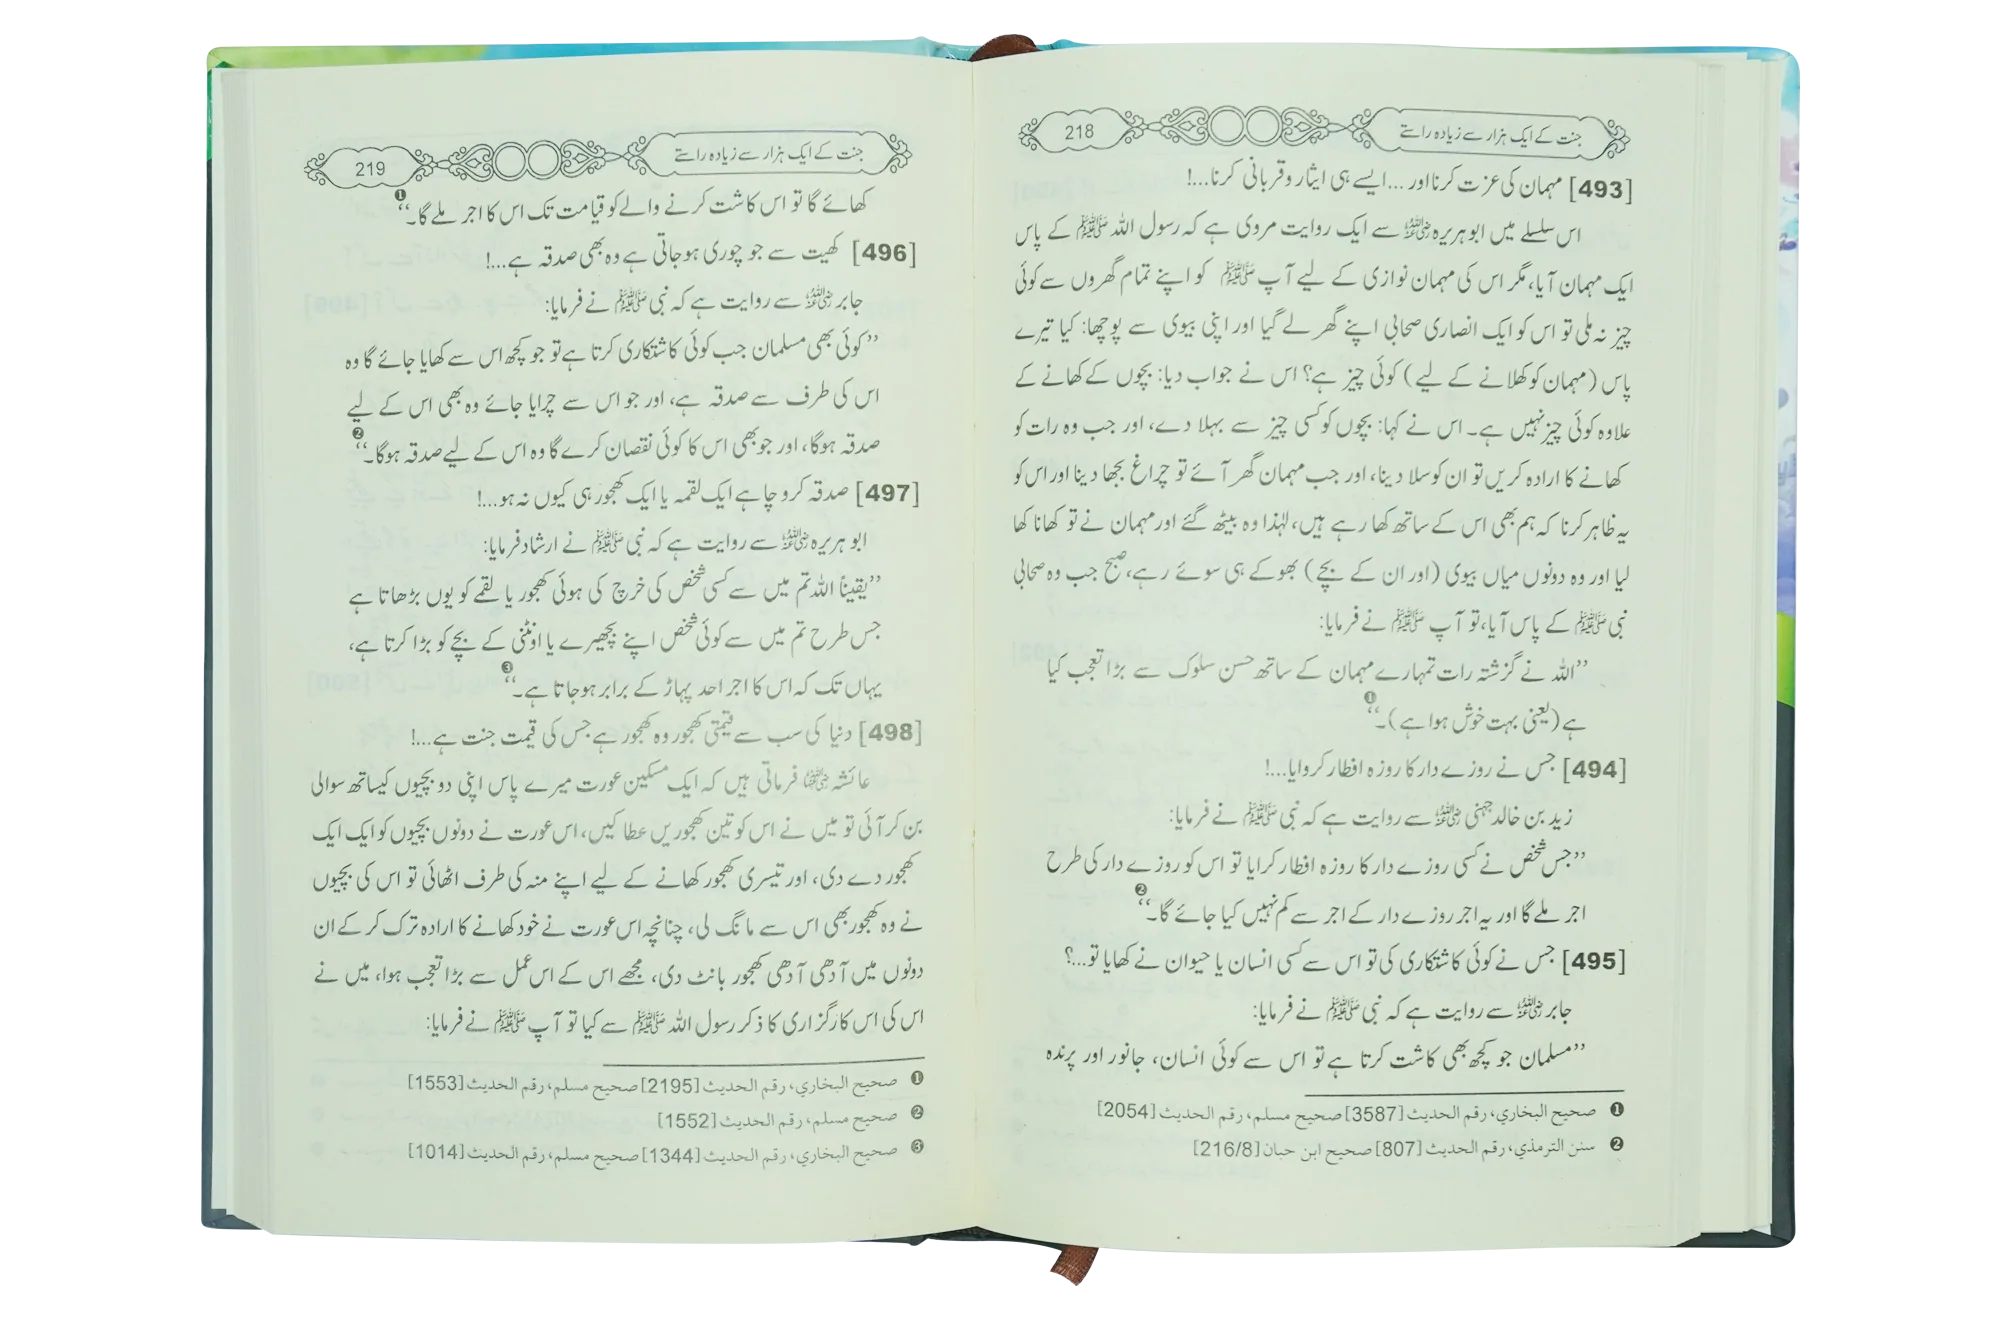 جنت کے ایک ہزار سے زیادہ راستے
218
[493] مہمان کی عزت کرنا اور ... ایسے ہی ایثار و قربانی کرنا...!
اس سلسلے میں ابو ہریرہ رضی اللہ عنہ سے ایک روایت مروی ہے کہ رسول اللہ ﷺ کے پاس
ایک مہمان آیا، مگر اس کی مہمان نوازی کے لیے آپ ﷺ کو اپنے تمام گھروں سے کوئی
چیز نہ ملی تو اس کو ایک انصاری صحابی اپنے گھر لے گیا اور اپنی بیوی سے پوچھا: کیا تیرے
پاس (مہمان کو کھلانے کے لیے) کوئی چیز ہے؟ اس نے جواب دیا: بچوں کے کھانے کے
علاوہ کوئی چیز نہیں ہے۔ اس نے کہا: بچوں کو کسی چیز سے بہلا دے، اور جب وہ رات کو
کھانے کا ارادہ کریں تو ان کو سلا دینا، اور جب مہمان گھر آئے تو چراغ بجھا دینا اور اس کو
یہ ظاہر کرنا کہ ہم بھی اس کے ساتھ کھا رہے ہیں، لہٰذا وہ بیٹھ گئے اور مہمان نے تو کھانا کھا
لیا اور وہ دونوں میاں بیوی (اور ان کے بچے) بھوکے ہی سوئے رہے، صبح جب وہ صحابی
نبی ﷺ کے پاس آیا، تو آپ ﷺ نے فرمایا:
”اللہ نے گزشتہ رات تمہارے مہمان کے ساتھ حسن سلوک سے بڑا تعجب کیا
ہے (یعنی بہت خوش ہوا ہے)۔“❶
[494] جس نے روزے دار کا روزہ افطار کروایا...!
زید بن خالد جہنی رضی اللہ عنہ سے روایت ہے کہ نبی ﷺ نے فرمایا:
”جس شخص نے کسی روزے دار کا روزہ افطار کرایا تو اس کو روزے دار کی طرح
اجر ملے گا اور یہ اجر روزے دار کے اجر سے کم نہیں کیا جائے گا۔“❷
[495] جس نے کوئی کاشتکاری کی تو اس سے کسی انسان یا حیوان نے کھایا تو...؟
جابر رضی اللہ عنہ سے روایت ہے کہ نبی ﷺ نے فرمایا:
”مسلمان جو کچھ بھی کاشت کرتا ہے تو اس سے کوئی انسان، جانور اور پرندہ
❶ صحيح البخاري، رقم الحديث [3587] صحيح مسلم، رقم الحديث [2054]
❷ سنن الترمذي، رقم الحديث [807] صحيح ابن حبان [216/8]
جنت کے ایک ہزار سے زیادہ راستے
219
کھائے گا تو اس کاشت کرنے والے کو قیامت تک اس کا اجر ملے گا۔“❶
[496] کھیت سے جو چوری ہو جاتی ہے وہ بھی صدقہ ہے...!
جابر رضی اللہ عنہ سے روایت ہے کہ نبی ﷺ نے فرمایا:
”کوئی بھی مسلمان جب کوئی کاشتکاری کرتا ہے تو جو کچھ اس سے کھایا جائے گا وہ
اس کی طرف سے صدقہ ہے، اور جو اس سے چرایا جائے وہ بھی اس کے لیے
صدقہ ہوگا، اور جو بھی اس کا کوئی نقصان کرے گا وہ اس کے لیے صدقہ ہوگا۔“❷
[497] صدقہ کرو چاہے ایک لقمہ یا ایک کھجور ہی کیوں نہ ہو...!
ابو ہریرہ رضی اللہ عنہ سے روایت ہے کہ نبی ﷺ نے ارشاد فرمایا:
”یقیناً اللہ تم میں سے کسی شخص کی خرچ کی ہوئی کھجور یا لقمے کو یوں بڑھاتا ہے
جس طرح تم میں سے کوئی شخص اپنے بچھیرے یا اونٹنی کے بچے کو بڑا کرتا ہے،
یہاں تک کہ اس کا اجر احد پہاڑ کے برابر ہو جاتا ہے۔“❸
[498] دنیا کی سب سے قیمتی کھجور وہ کھجور ہے جس کی قیمت جنت ہے...!
عائشہ رضی اللہ عنہا فرماتی ہیں کہ ایک مسکین عورت میرے پاس اپنی دو بچیوں کیساتھ سوالی
بن کر آئی تو میں نے اس کو تین کھجوریں عطا کیں، اس عورت نے دونوں بچیوں کو ایک ایک
کھجور دے دی، اور تیسری کھجور کھانے کے لیے اپنے منہ کی طرف اٹھائی تو اس کی بچیوں
نے وہ کھجور بھی اس سے مانگ لی، چنانچہ اس عورت نے خود کھانے کا ارادہ ترک کر کے ان
دونوں میں آدھی آدھی کھجور بانٹ دی، مجھے اس کے اس عمل سے بڑا تعجب ہوا، میں نے
اس کی اس کارگزاری کا ذکر رسول اللہ ﷺ سے کیا تو آپ ﷺ نے فرمایا:
❶ صحيح البخاري، رقم الحديث [2195] صحيح مسلم، رقم الحديث [1553]
❷ صحيح مسلم، رقم الحديث [1552]
❸ صحيح البخاري، رقم الحديث [1344] صحيح مسلم، رقم الحديث [1014]